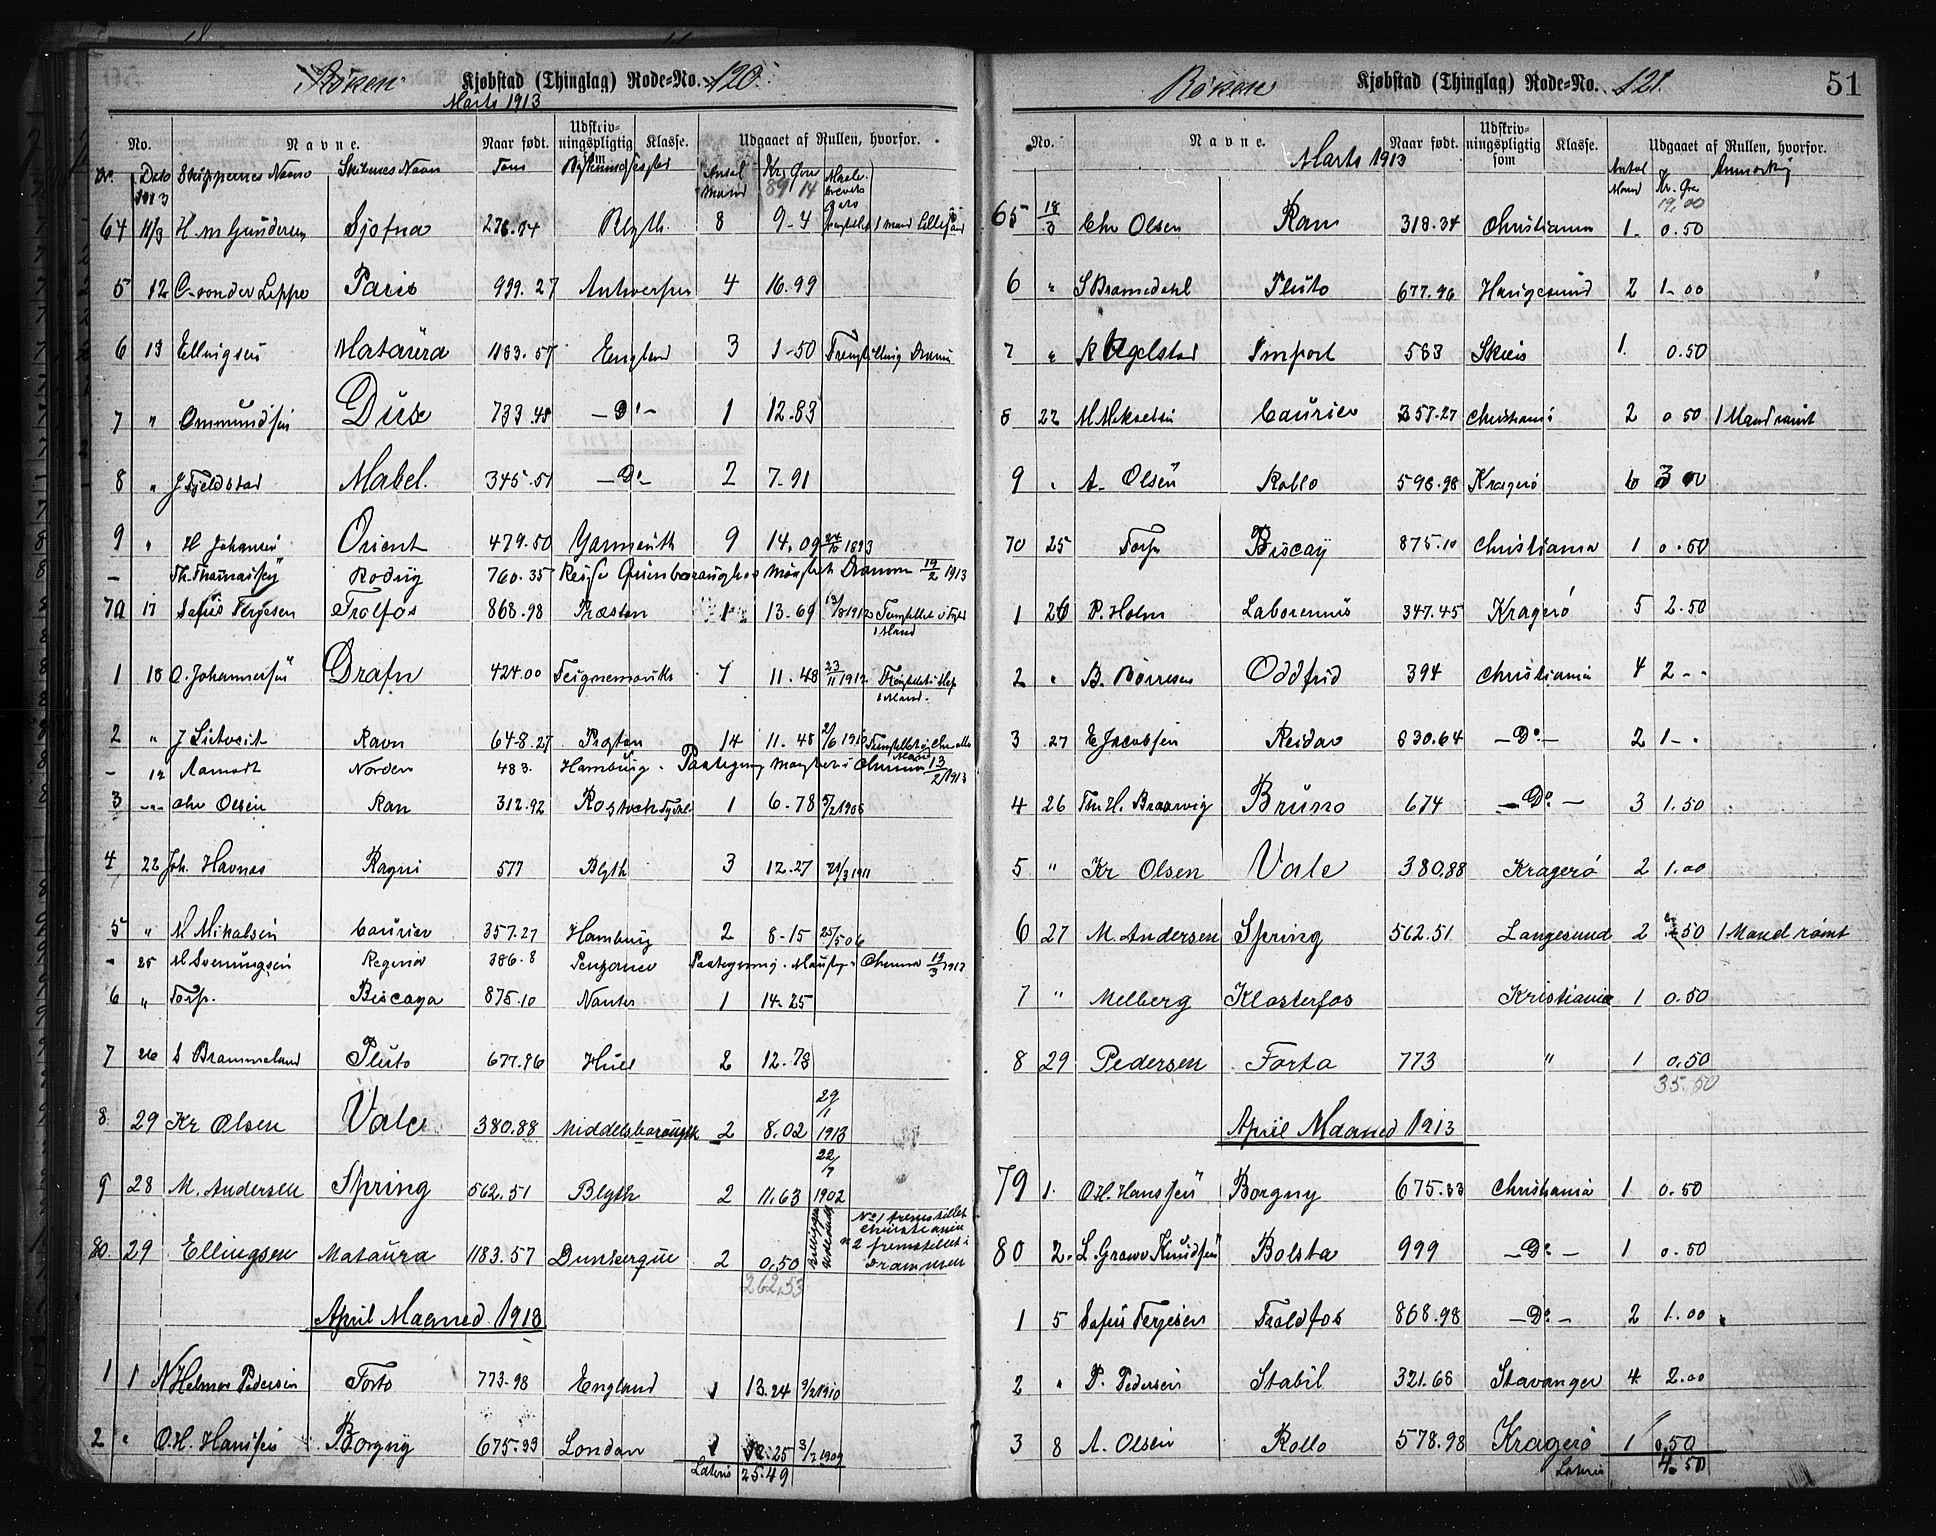 Röken Kjøbstad (Thinglag) Rode-No. 120.
Marts 1913
No. Navne. Naar født. Udskrivningspligtig som Klasse. Udgaaet af Rullen, hvorfor.
No. Dato Skippernes Navn Skibenes Navn Tons Antal Mand Kr. Øre
1913 89 14
64 11/3 H. M. Gundersen Sjofna 276.74 Blyth. 8 9-4 1 mand Lillesand
5 12 C. von der Lippe Paris 999.27 Antwerpen 4 16.99
6 13 Ellingsen Mataura 1183.57 England 3 1-50 Fremstilling Dramn
7 " Ommundsen Dux 733.48 — Do — 1 12.83
8 " J Fjeldstad Mabel. 345.51 — Do — 2 7-91
9 " H Johansen Orient 479.50 Yarmouth 9 14.09 1893
— Th. Thomassen Rodny 760.35 Reise Mønstret Dramn 19/2 1913
70 17 Sofus Terjesen Trolfos 868.98 Præston 1 13.69 13/8 1912 1 Mand
1 18 O. Johannesen Drafn 424.00 Teignemouth 7 11.48 23/11 1912
2 " J Sietveit Ravn 648.27 Preston 14 11.48 2/6 1910
— 12 Aamodt Norden 483. Hamburg. Paategning Mønstret i Chrania 13/2 1913
3 -"- Chr Olsen Ran 312.92 Rostock Tyskl. 1 6.78 5/2 1906
4 22 Joh. Havnes Ragni 577 Blyth 3 12.27 21/3 1911
5 " M Mikalsen Courier 357.27 Hamburg 2 8-15 25/5 06
— 25 M Svenungsen Regina 386.8 Paategning. Chrania 19/3 1913
6 " Torp. Biscaya 875.10 Nantes 1 14-25
7 26 S Brammeland Pluto 677.96 Hull 2 12.73
8 29 Kr Olsen Vale 380.88 Middelsborough 2 8.02 29/1 1913
9 28 M. Andersen Spring 562.51 Blyth 2 11,63 22/7 1902
80. 29 Ellingsen Mataura 1183.57 Dunkerque 2 0,50 No 1 fremstillet Christiania " 2 fremstillet i Drammen
262,53
April Maaned 1913
1 1 N Helmer Pedersen Forto 773.98 England 1 13.24 9/2 1910
2 " O. H. Hansen Borgny 675.33 London 1 12.25 3/7 1909
Lateris 25.49
Röken Kjøbstad (Thinglag) Rode-No. 121. 51
No. Navne. Naar født. Udskrivningspligtig som Klasse. Udgaaet af Rullen, hvorfor.
Marts 1913 Antal Mand Kr. Øre Anmerkng
19,00
65 18/3 Chr Olsen Ran 318.34 Christiania 1- 0.50
6 " S Bramedahl Pluto 677.96 Haugesund 2 1-00
7 " R Agelstad Import 563 Skien 1. 0.50
8 22 M. Mikalsen Courier 357.27 Christiania 2 0 50 1 Mand rømt
9 " A. Olsen Rollo 598.98 Kragerö 6 3 00
70 25 Torp Biscay 875.10 Christiania 1 0.50
1 26 P. Holm Laboremus 347.45 Kragerö 5 2.50
2 " B. Börresen Oddfrid 394 Christiania 4 2 - -
3 27 E Jacobsen Reidar 630.64 — Do — 2 1 - .
4 26 Thv. H. Braarvig Bruno 674 — Do — 3 1.50
5 " Kr Olsen Vale 380.88 Kragerö 2 1.00
6 27 M. Andersen Spring 562.51 Langesund 2 50 1 Mand rømt
7 " Melberg Klosterfos Kristiania 1 0.50
8 29 Pedersen Forto 773 " 1 0.50
35.50
April Maaned 1913
79 1. O. H. Hanssen Borgny 675.33 Christiania 1 0.50
80 2. L. Grawo Knudsen Bolsta 999 — Do — 1 0.50
1 5 Sofus Terjesen Troldfos 868.98 — Do — 2 1.00
2 " P. Pedersen Stabil 321.68 Stavanger 4 2.00
3 8 A. Olsen Rollo 578.98 Kragerö 1 0.50
Lateris 4.50